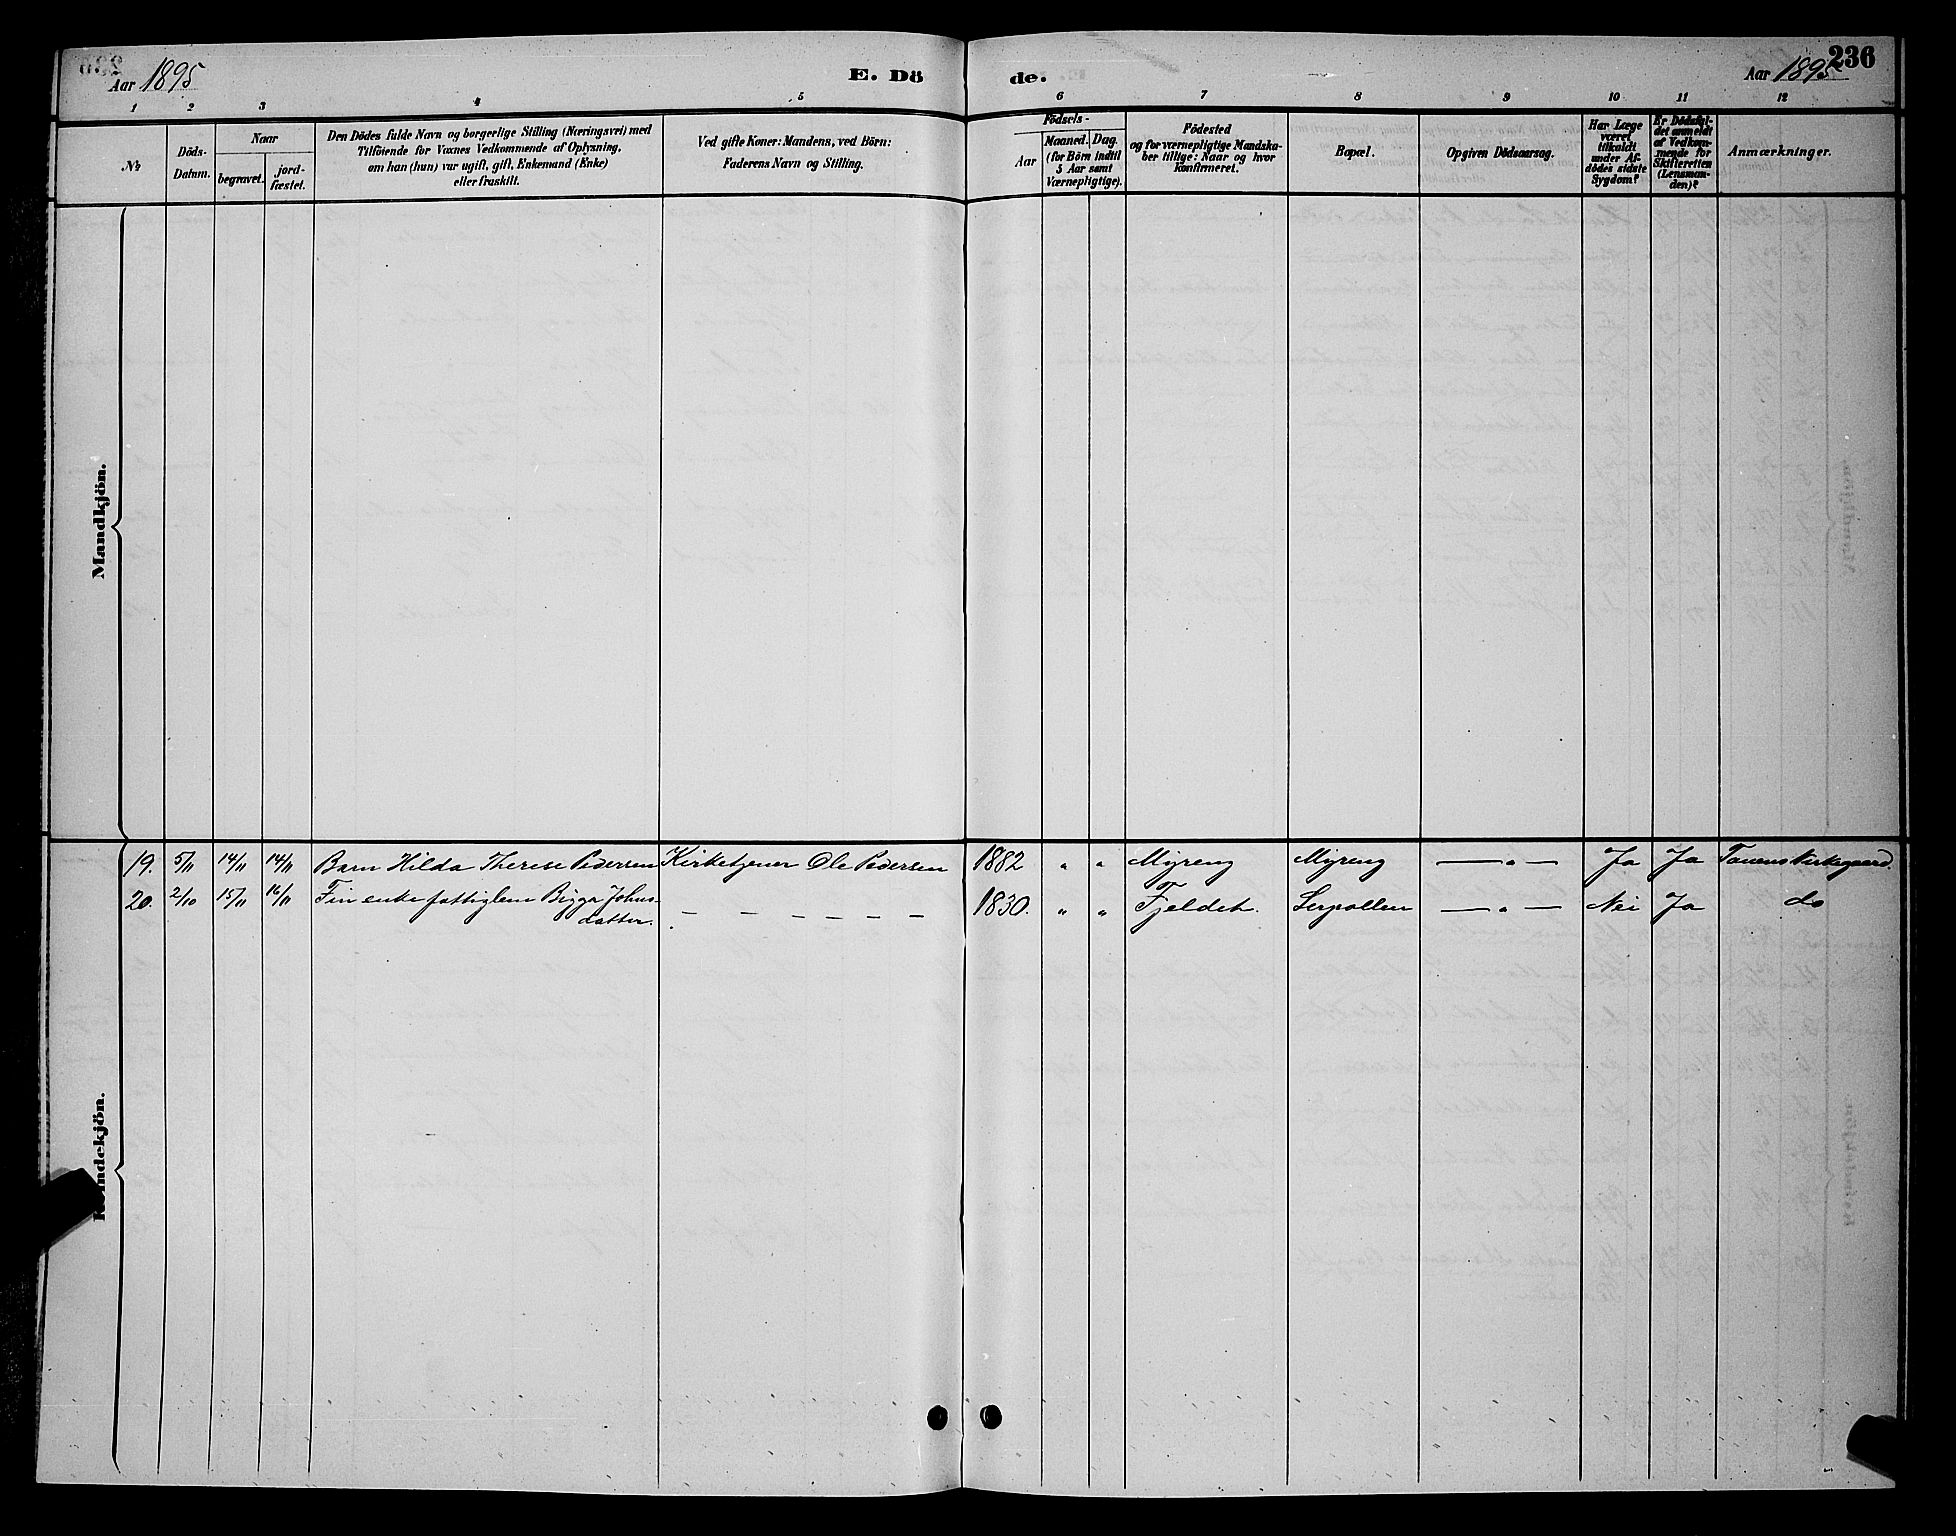 Aar 1895 E. Dö de. Aar 1895 236
1 2 3 4 5 6 7 8 9 10 11 12
No Döds-Datum. Naar begravet. jordfæstet.
Den Dödes fulde Navn og borgerlige Stilling (Næringsvei) med
Tilföiende for Voxnes Vedkommende af Oplysning,
om han (hun) var ugift, gift, Enkemand (Enke)
eller fraskilt.
Ved gifte Koner: Mandens, ved Börn:
Faderens Navn og Stilling.
Födsels-
Aar Maaned. Dag.
(for Börn indtil
5 Aar samt
Værnepligtige).
Födested
og for værnepligtige Mandska-
ber tillige: Naar og hvor
konfirmeret.
Bopæl.
Opgiven Dödsaarsag.
Har Læge
været
tilkaldt
under Af-
dödes sidste
Sygdom?
Er Dödsfal-
det anmeldt
af Vedkom-
mende for
Skifteretten
(Lensman-
den)?
Anmærkninger.
Mandkjön.
Kvindekjön.
19. 5/11 14/11 14/11 Barn Hilda Therese Pedersen Kirketjener Ole Pedersen 1882 " " Myreng Myreng — " — Ja Ja Tanens Kirkegaard.
20. 2/10 15/11 16/11 Fin enke fattiglem Bigga Johns- — — — — — — 1830. " " Fjeldet. Leirpollen — " — Nei Ja do
datter.